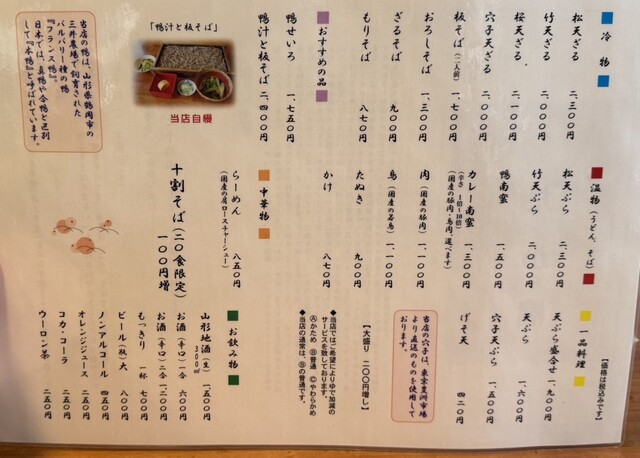 冷物
松天ざる 二、三〇〇円
竹天ざる 二、〇〇〇円
桜天ざる 二、一〇〇円
穴子天ざる 二、〇〇〇円
板そば(二人前) 一、七〇〇円
おろしそば 一、三〇〇円
ざるそば 九〇〇円
もりそば 八七〇円
おすすめの品
鴨せいろ 一、七五〇円
鴨汁と板そば 二、四〇〇円
「鴨汁と板そば」
当店自慢
当店の鴨は、山形県鶴岡市の
三井農場で飼育された
バルバリー種の鴨
『フランス鴨』。
日本では、真鴨や合鴨と区別
して『本鴨』と呼ばれています。
温物(うどん、そば)
松天ぷら 二、三〇〇円
竹天ぷら 二、〇〇〇円
鴨南蛮 一、五〇〇円
カレー南蛮 一、三〇〇円
(辛さ 1倍〜10倍)
(国産の豚肉・鳥肉、選べます)
肉(国産の豚肉) 一、一〇〇円
鳥(国産の若鳥) 一、一〇〇円
たぬき 九〇〇円
かけ 八七〇円
中華物
らーめん 八五〇円
(国産の肩ロースチャーシュー)
十割そば(二〇食限定)
一〇〇円増
一品料理
【価格は税込みです】
天ぷら盛合せ 一、九〇〇円
天ぷら 一、六〇〇円
穴子天ぷら 一、五〇〇円
げそ天 四二〇円
当店の穴子は、東京豊洲市場
より直送のものを使用して
おります。
【大盛り 二〇〇円増し】
◆当店ではご希望によりゆで加減の
サービスを致しております。
Ⓐかため Ⓑ普通 Ⓒやわらかめ
◆当店の通常は、Ⓑの普通です。
お飲み物
山形地酒(生) 一、五〇〇円
300ml
お酒(辛口)一合 六〇〇円
お酒(辛口)二合 一、二〇〇円
もっきり 一杯 七〇〇円
ビール(瓶)大 八〇〇円
ノンアルコール 四五〇円
オレンジジュース 二五〇円
コカ・コーラ 二五〇円
ウーロン茶 二五〇円